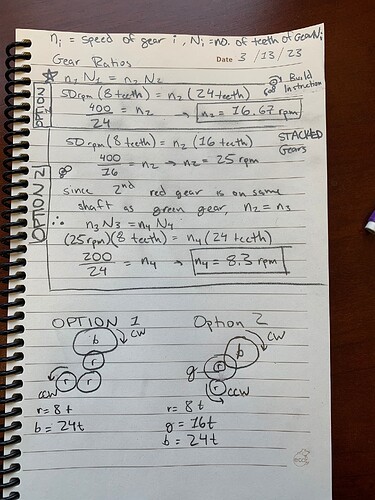 ni = speed of gear i, Ni = no. of teeth of Gear Ni
Gear Ratios Date 3/13/23
☆ n₁ N₁ = n₂ N₂
Build Instruction
OPTION 1
50rpm (8 teeth) = n₂ (24 teeth)
400/24 = n₂ → n₂ = 16.67 rpm
OPTION 2
50rpm (8 teeth) = n₂ (16 teeth)
STACKED Gears
400/16 = n₂ → n₂ = 25 rpm
since 2nd red gear is on same
shaft as green gear, n₂ = n₃
∴ n₃ N₃ = n₄ N₄
(25rpm)(8 teeth) = n₄ (24 teeth)
200/24 = n₄ → n₄ = 8.3 rpm
OPTION 1
b CW
r
CCW r r
r = 8t
b = 24t
Option 2
b CW
g r
r CCW
r = 8t
g = 16t
b = 24t